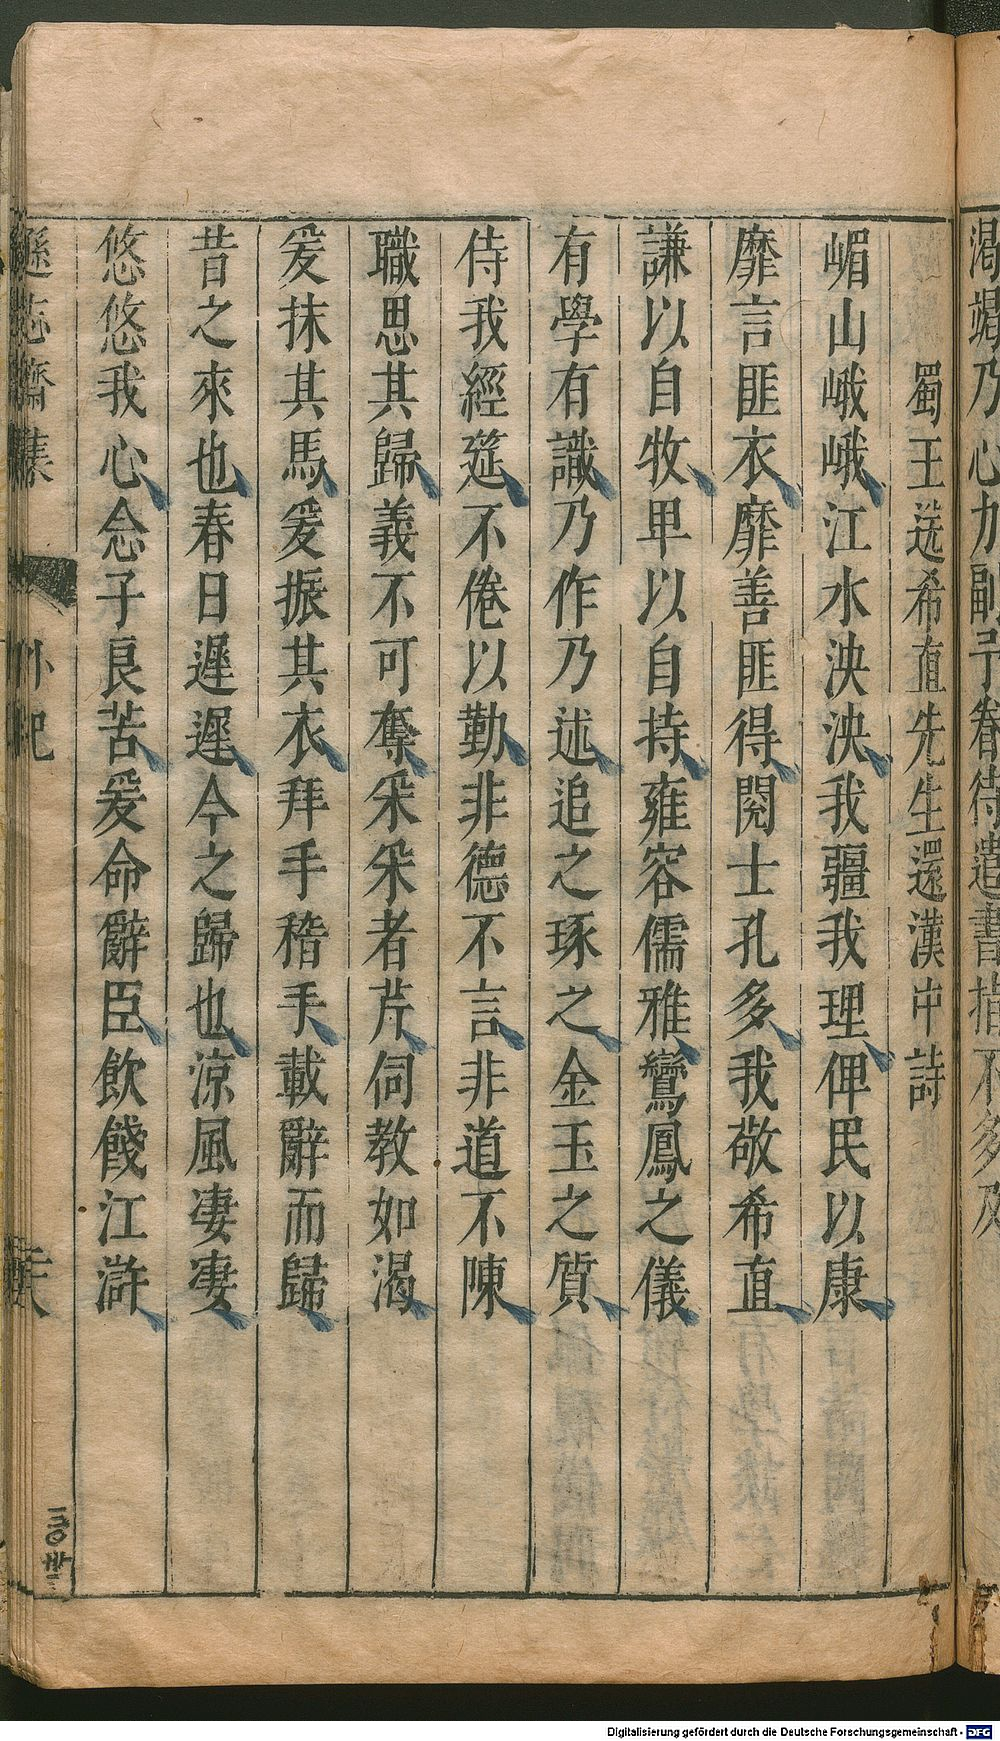 渴竭乃心加副予眷待遣書指不多及
蜀王送希直先生還漢中詩
嵋山峨峨江水泱泱我疆我理俾民以康
靡言匪衣靡善匪得閱士孔多我敬希直
謙以自牧卑以自持雍容儒雅鸞鳳之儀
有學有識乃作乃述追之琢之金玉之質
侍我經筵不倦以勤非德不言非道不陳
職思其歸義不可奪采采者芹伺教如渴
爰抹其馬爰振其衣拜手稽手載辭而歸
昔之來也春日遲遲今之歸也涼風凄凄
悠悠我心念子良苦爰命辭臣飲餞江滸
遜志齋集
外紀
Digitalisierung gefördert durch die Deutsche Forschungsgemeinschaft - DFG